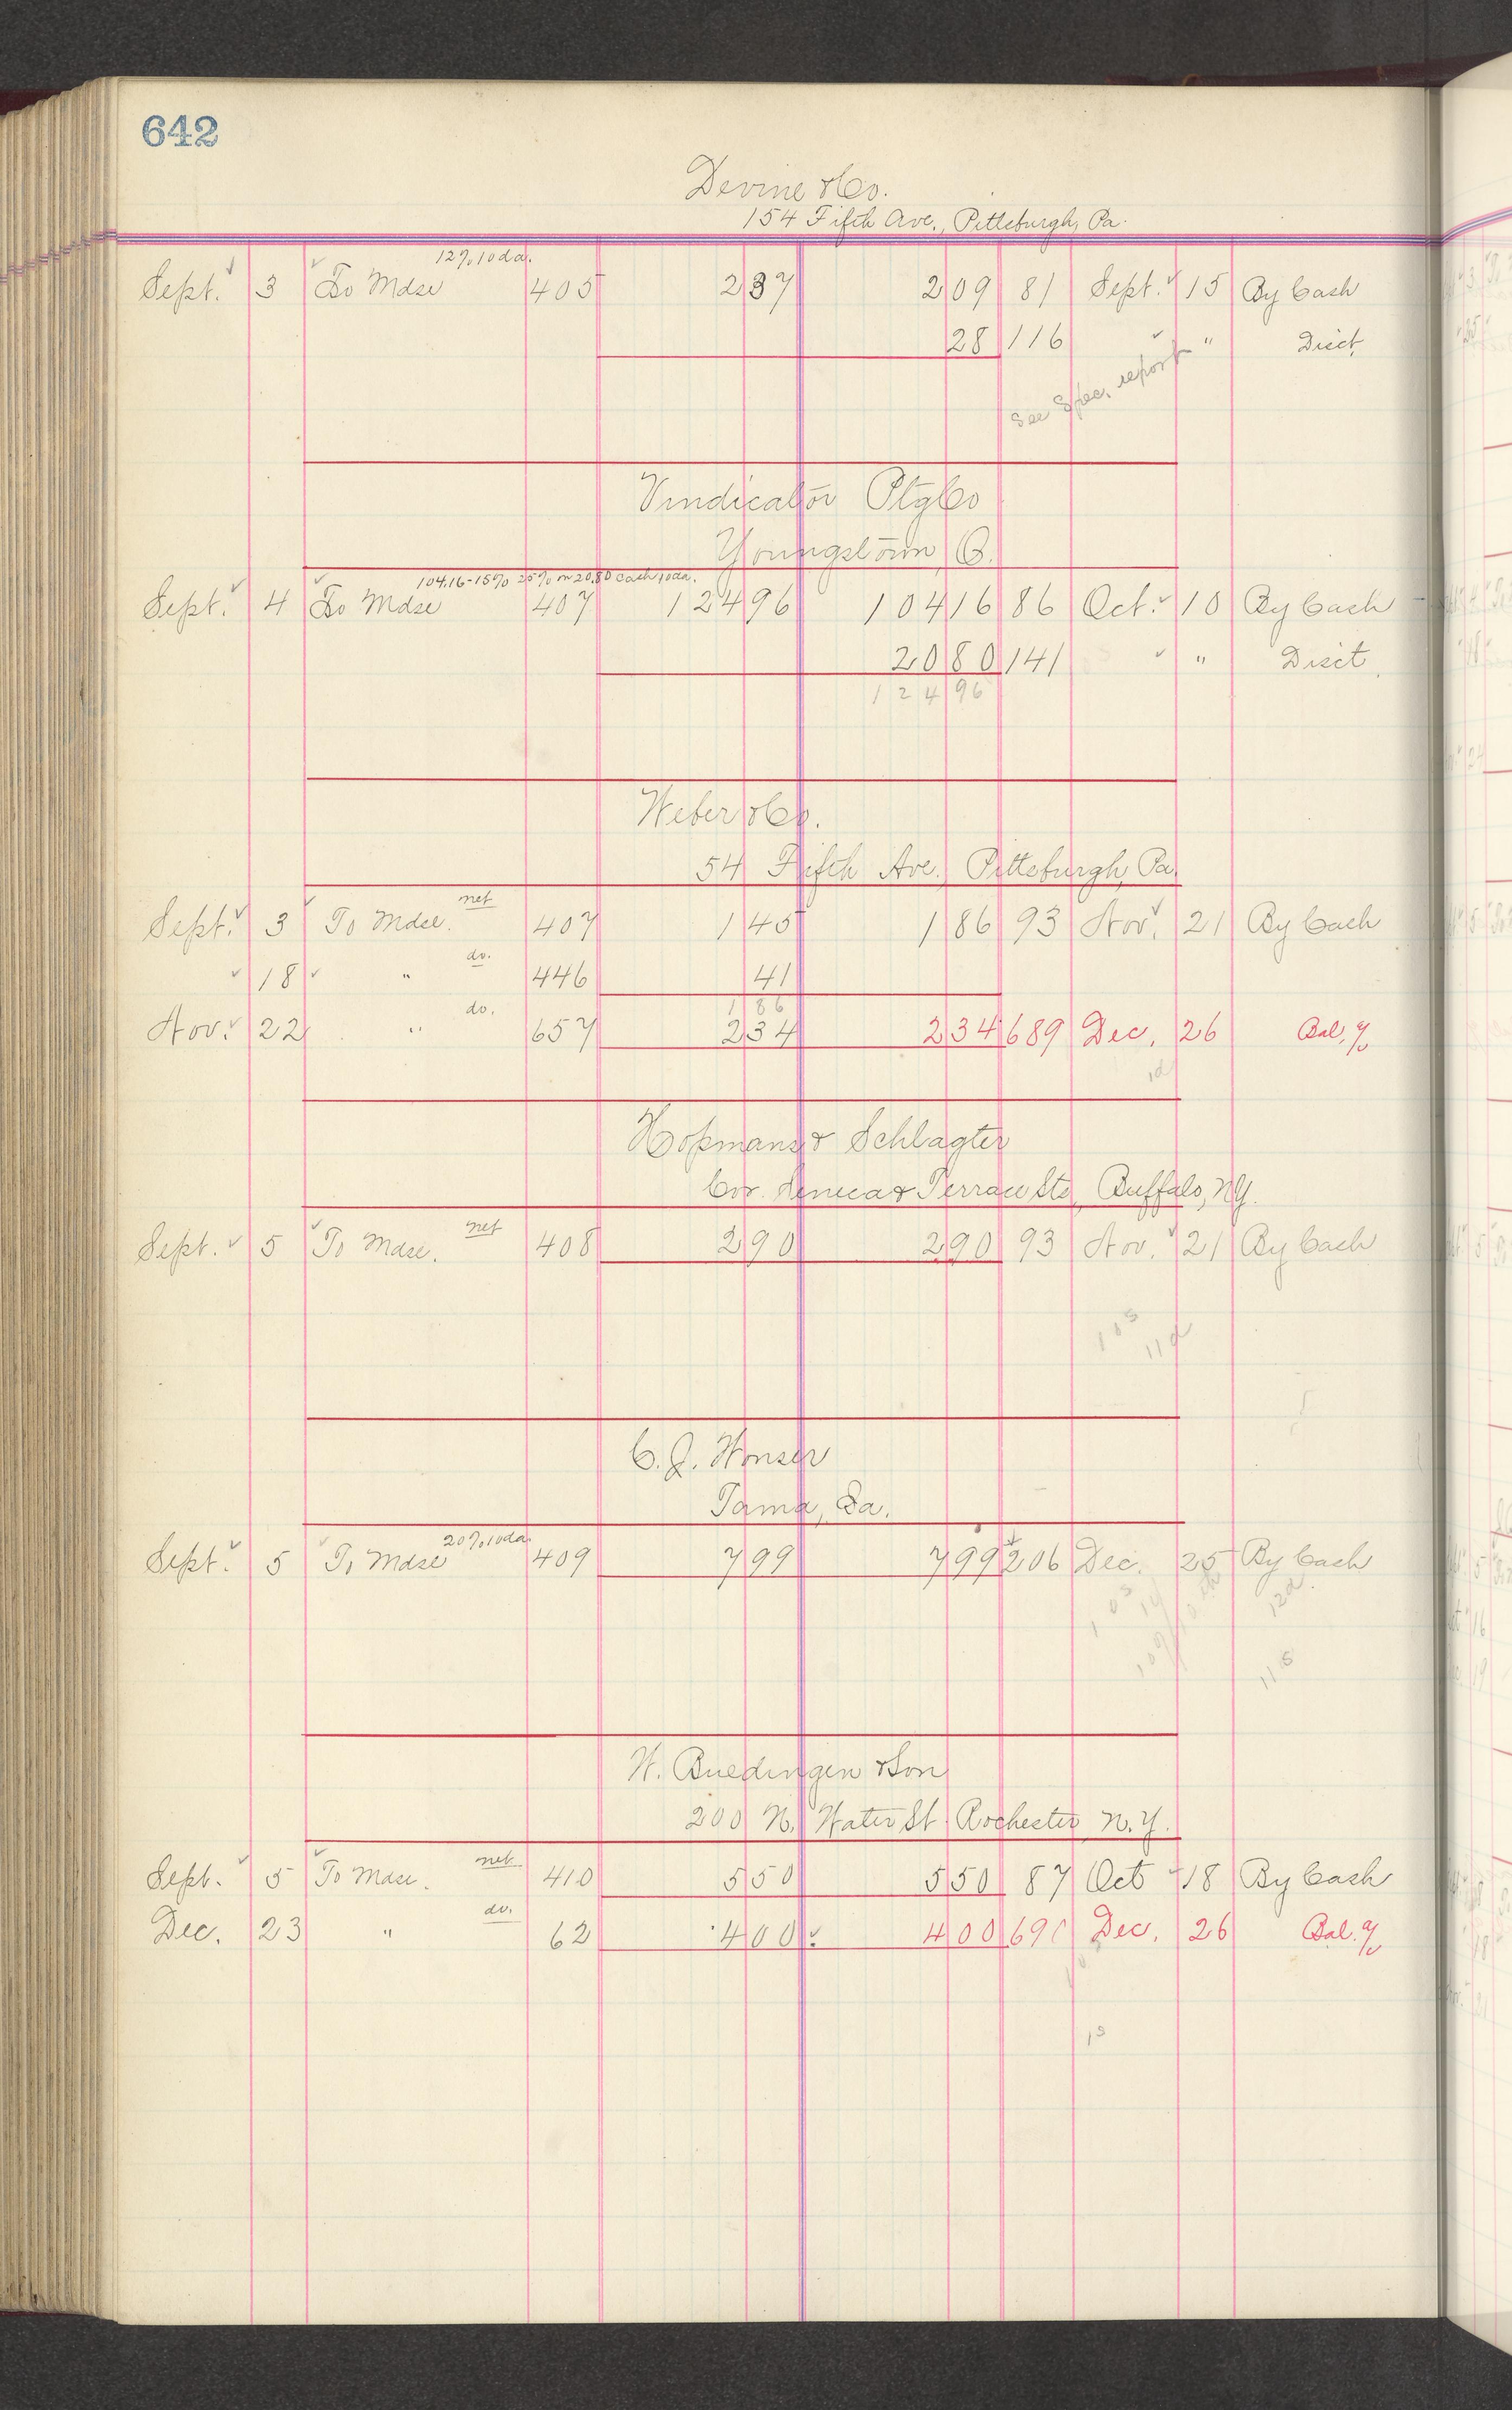 642
Devine & Co.
154 Fifth Ave., Pittsburgh, Pa.
12% 10 da.
Sept. 3 To Mdse 405 2 37 2 09 81 Sept. 15 By Cash
28 116 " Disct.
See Spec. report
Vindicator Ptg Co
Youngstown, O.
104.16-15% 25% on 20.80 Cash 10 da.
Sept. 4 To Mdse 407 124 96 104 16 86 Oct. 10 By Cash
20 80 141 " Disct.
124 96
Weber & Co.
54 Fifth Ave., Pittsburgh, Pa.
net
Sept. 3 To Mdse. 407 1 45 1 86 93 Nov. 21 By Cash
do.
18 " 446 41
1 86
do.
Nov. 22 " 657 2 34 2 34 689 Dec. 26 Bal. %
1d
Hofmans & Schlagter
Cor. Seneca & Terrace Sts, Buffalo, N.Y.
net
Sept. 5 To Mdse. 408 2 90 2 90 93 Nov. 21 By Cash
10s
11d
C. J. Wonser
Tama, Ia.
20% 10 da
Sept. 5 To Mdse 409 7 99 7 99 206 Dec. 25 By Cash
10s
12d.
11s
W. Buedingen & Son
200 N. Water St. Rochester, N.Y.
net
Sept. 5 To Mdse. 410 5 50 5 50 87 Oct 18 By Cash
do.
Dec. 23 " 62 4 00 4 00 690 Dec. 26 Bal. %
1s